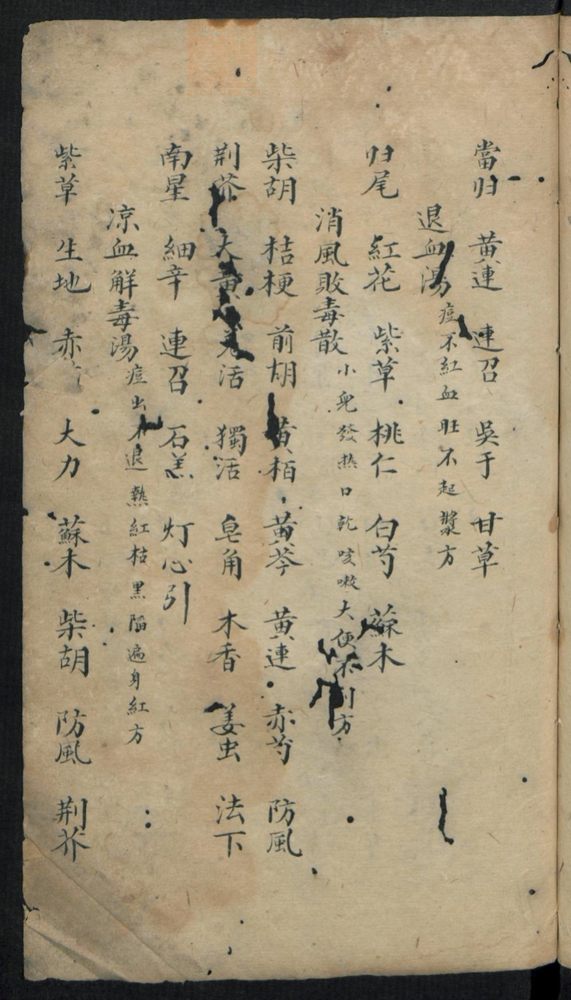 當归 黄連 連召 吳于 甘草
退血湯 痘不紅血旺不起漿方
归尾 紅花 紫草 桃仁 白芍 蘇木
消風敗毒散 小兒發热口乾咳嗽大便不利方
柴胡 桔梗 前胡 黄栢 黄芩 黄連 赤芍 防風
荆芥 大黄 活 獨活 皂角 木香 姜虫 法下
南星 細辛 連召 石羔 灯心引
凉血解毒湯 痘出不退熱紅枯黑陷遍身紅方
紫草 生地 赤 大力 蘇木 柴胡 防風 荆芥